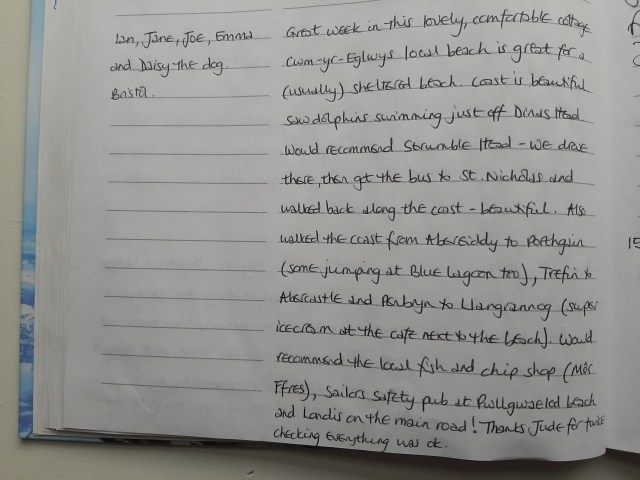 Ian, Jane, Joe, Emma
and Daisy the dog.
Bristol.
Great week in this lovely, comfortable cottage
Cwm-yr-Eglwys local beach is great for a
(usually) sheltered beach. Coast is beautiful
saw dolphins swimming just off Dinas Head
Would recommend Strumble Head - we drove
there, then got the bus to St. Nicholas and
walked back along the coast - beautiful. Also
walked the coast from Abereiddy to Porthgain
(some jumping at Blue Lagoon too), Trefin to
Abercastle and Penbryn to Llangrannog (super
icecream at the cafe next to the beach). Would
recommend the local fish and chip shop (Môr
Ffres), Sailors Safety pub at Pwllgwaelod beach
and Landis on the main road! Thanks Jude for twice
checking everything was ok.
15